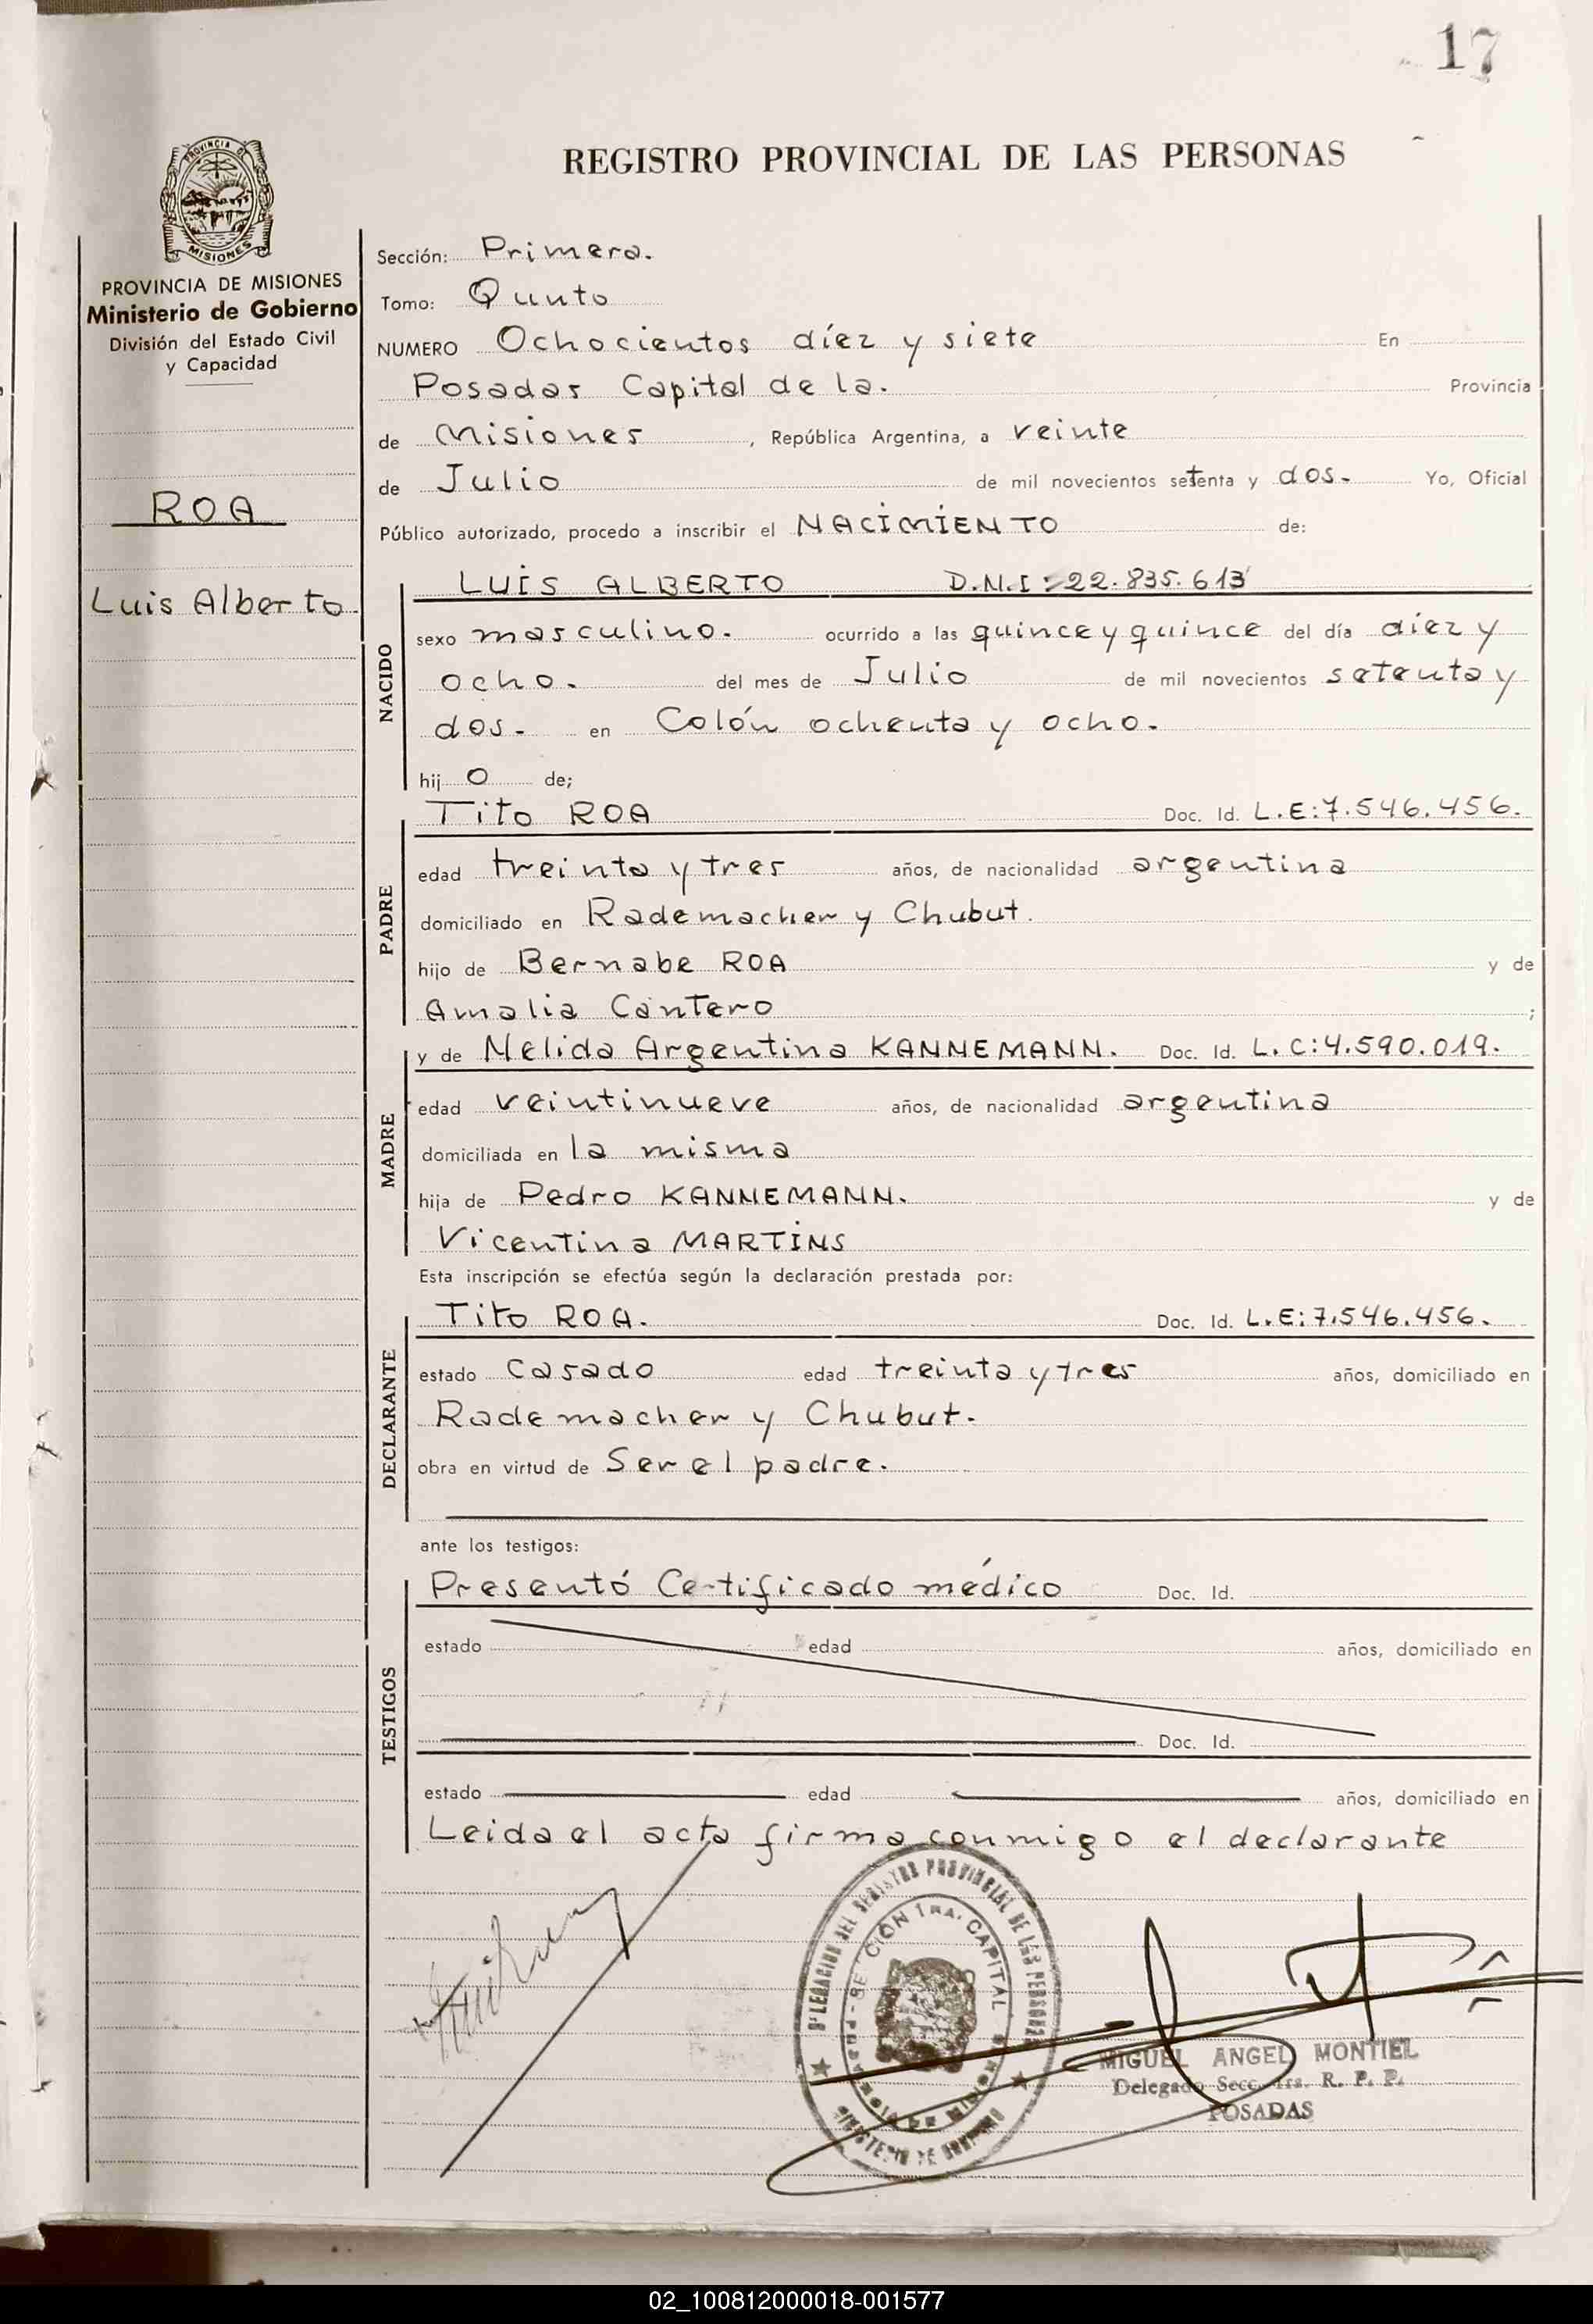 17
REGISTRO PROVINCIAL DE LAS PERSONAS
PROVINCIA DE MISIONES
PROVINCIA DE MISIONES
Ministerio de Gobierno
División del Estado Civil
y Capacidad
ROA
Luis Alberto
Sección: Primera.
Tomo: Qunto
NUMERO Ochocientos díez y siete En
Posadas Capital de la. Provincia
de Misiones, República Argentina, a veinte
de Julio de mil novecientos setenta y dos. Yo, Oficial
Público autorizado, procedo a inscribir el NACIMIENTO de:
NACIDO
LUIS ALBERTO D.N.I: 22.835.613
sexo masculino. ocurrido a las quince y quince del día diez y
ocho. del mes de Julio de mil novecientos setenta y
dos. en Colón ochenta y ocho.
hij o de;
PADRE
Tito ROA Doc. Id. L.E:7.546.456.
edad treinta y tres años, de nacionalidad argentina
domiciliado en Rademacher y Chubut.
hijo de Bernabe ROA y de
Amalia Cantero ;
MADRE
y de Nelida Argentina KANNEMANN. Doc. Id. L.C:4.590.019.
edad veintinueve años, de nacionalidad argentina
domiciliada en la misma
hija de Pedro KANNEMANN. y de
Vicentina MARTINS
Esta inscripción se efectúa según la declaración prestada por:
DECLARANTE
Tito ROA. Doc. Id. L.E:7.546.456.
estado Casado edad treinta y tres años, domiciliado en
Rademacher y Chubut.
obra en virtud de Ser el padre.
ante los testigos:
TESTIGOS
Presentó Certificado médico Doc. Id.
estado edad años, domiciliado en
Doc. Id.
estado edad años, domiciliado en
Leida el acta firma conmigo el declarante
DELEGACION DEL REGISTRO PROVINCIAL DE LAS PERSONAS
SECCION 1RA. CAPITAL
MINISTERIO DE GOBIERNO
MIGUEL ANGEL MONTIEL
Delegado Secc. 1ra. R. P. P.
POSADAS
02_100812000018-001577